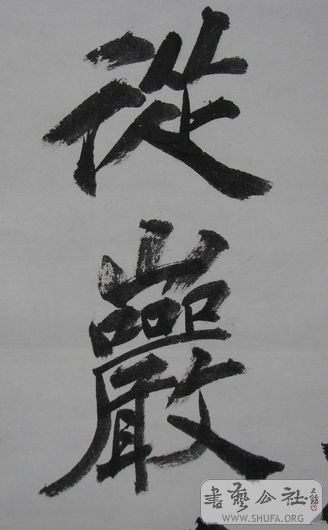 從
巖
書藝公社
WWW.SHUFA.ORG